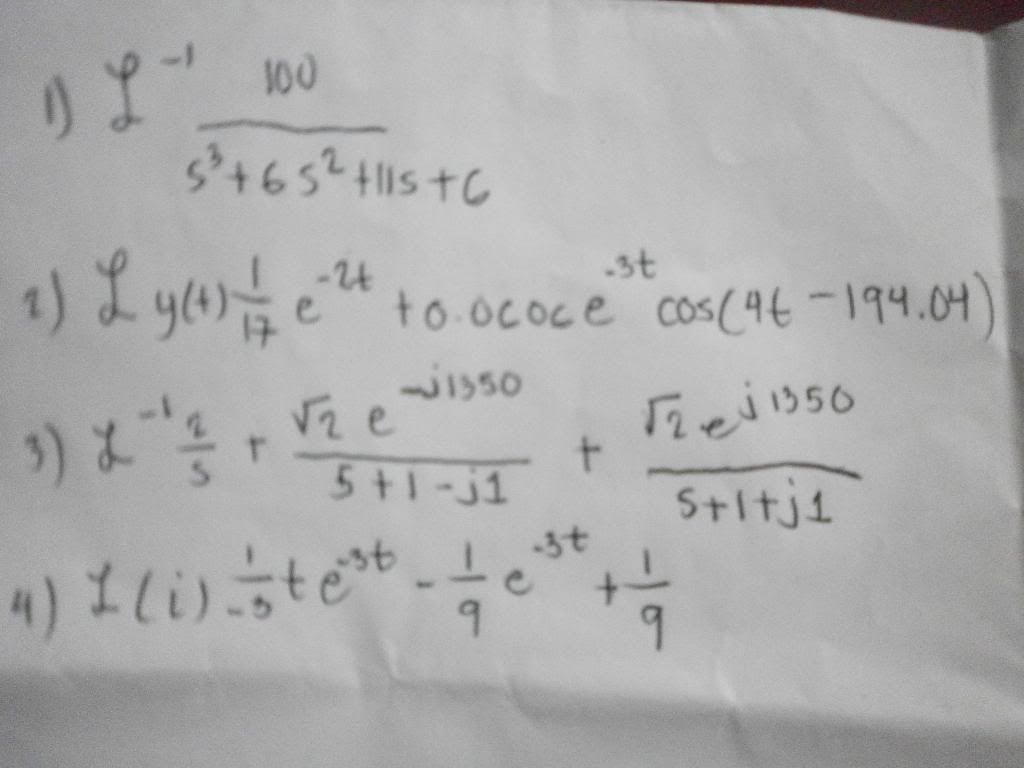 1) ℒ⁻¹ 100
s³+6s²+11s+6
2) ℒ y(t) 1/17 e^-2t +0.0606e^-3t cos(4t-194.04)
3) ℒ⁻¹ 2/s + √2 e^-j135° / s+1-j1 + √2 e^j135° / s+1+j1
4) ℒ(i) 1/-3 te^-3t - 1/9 e^-3t + 1/9